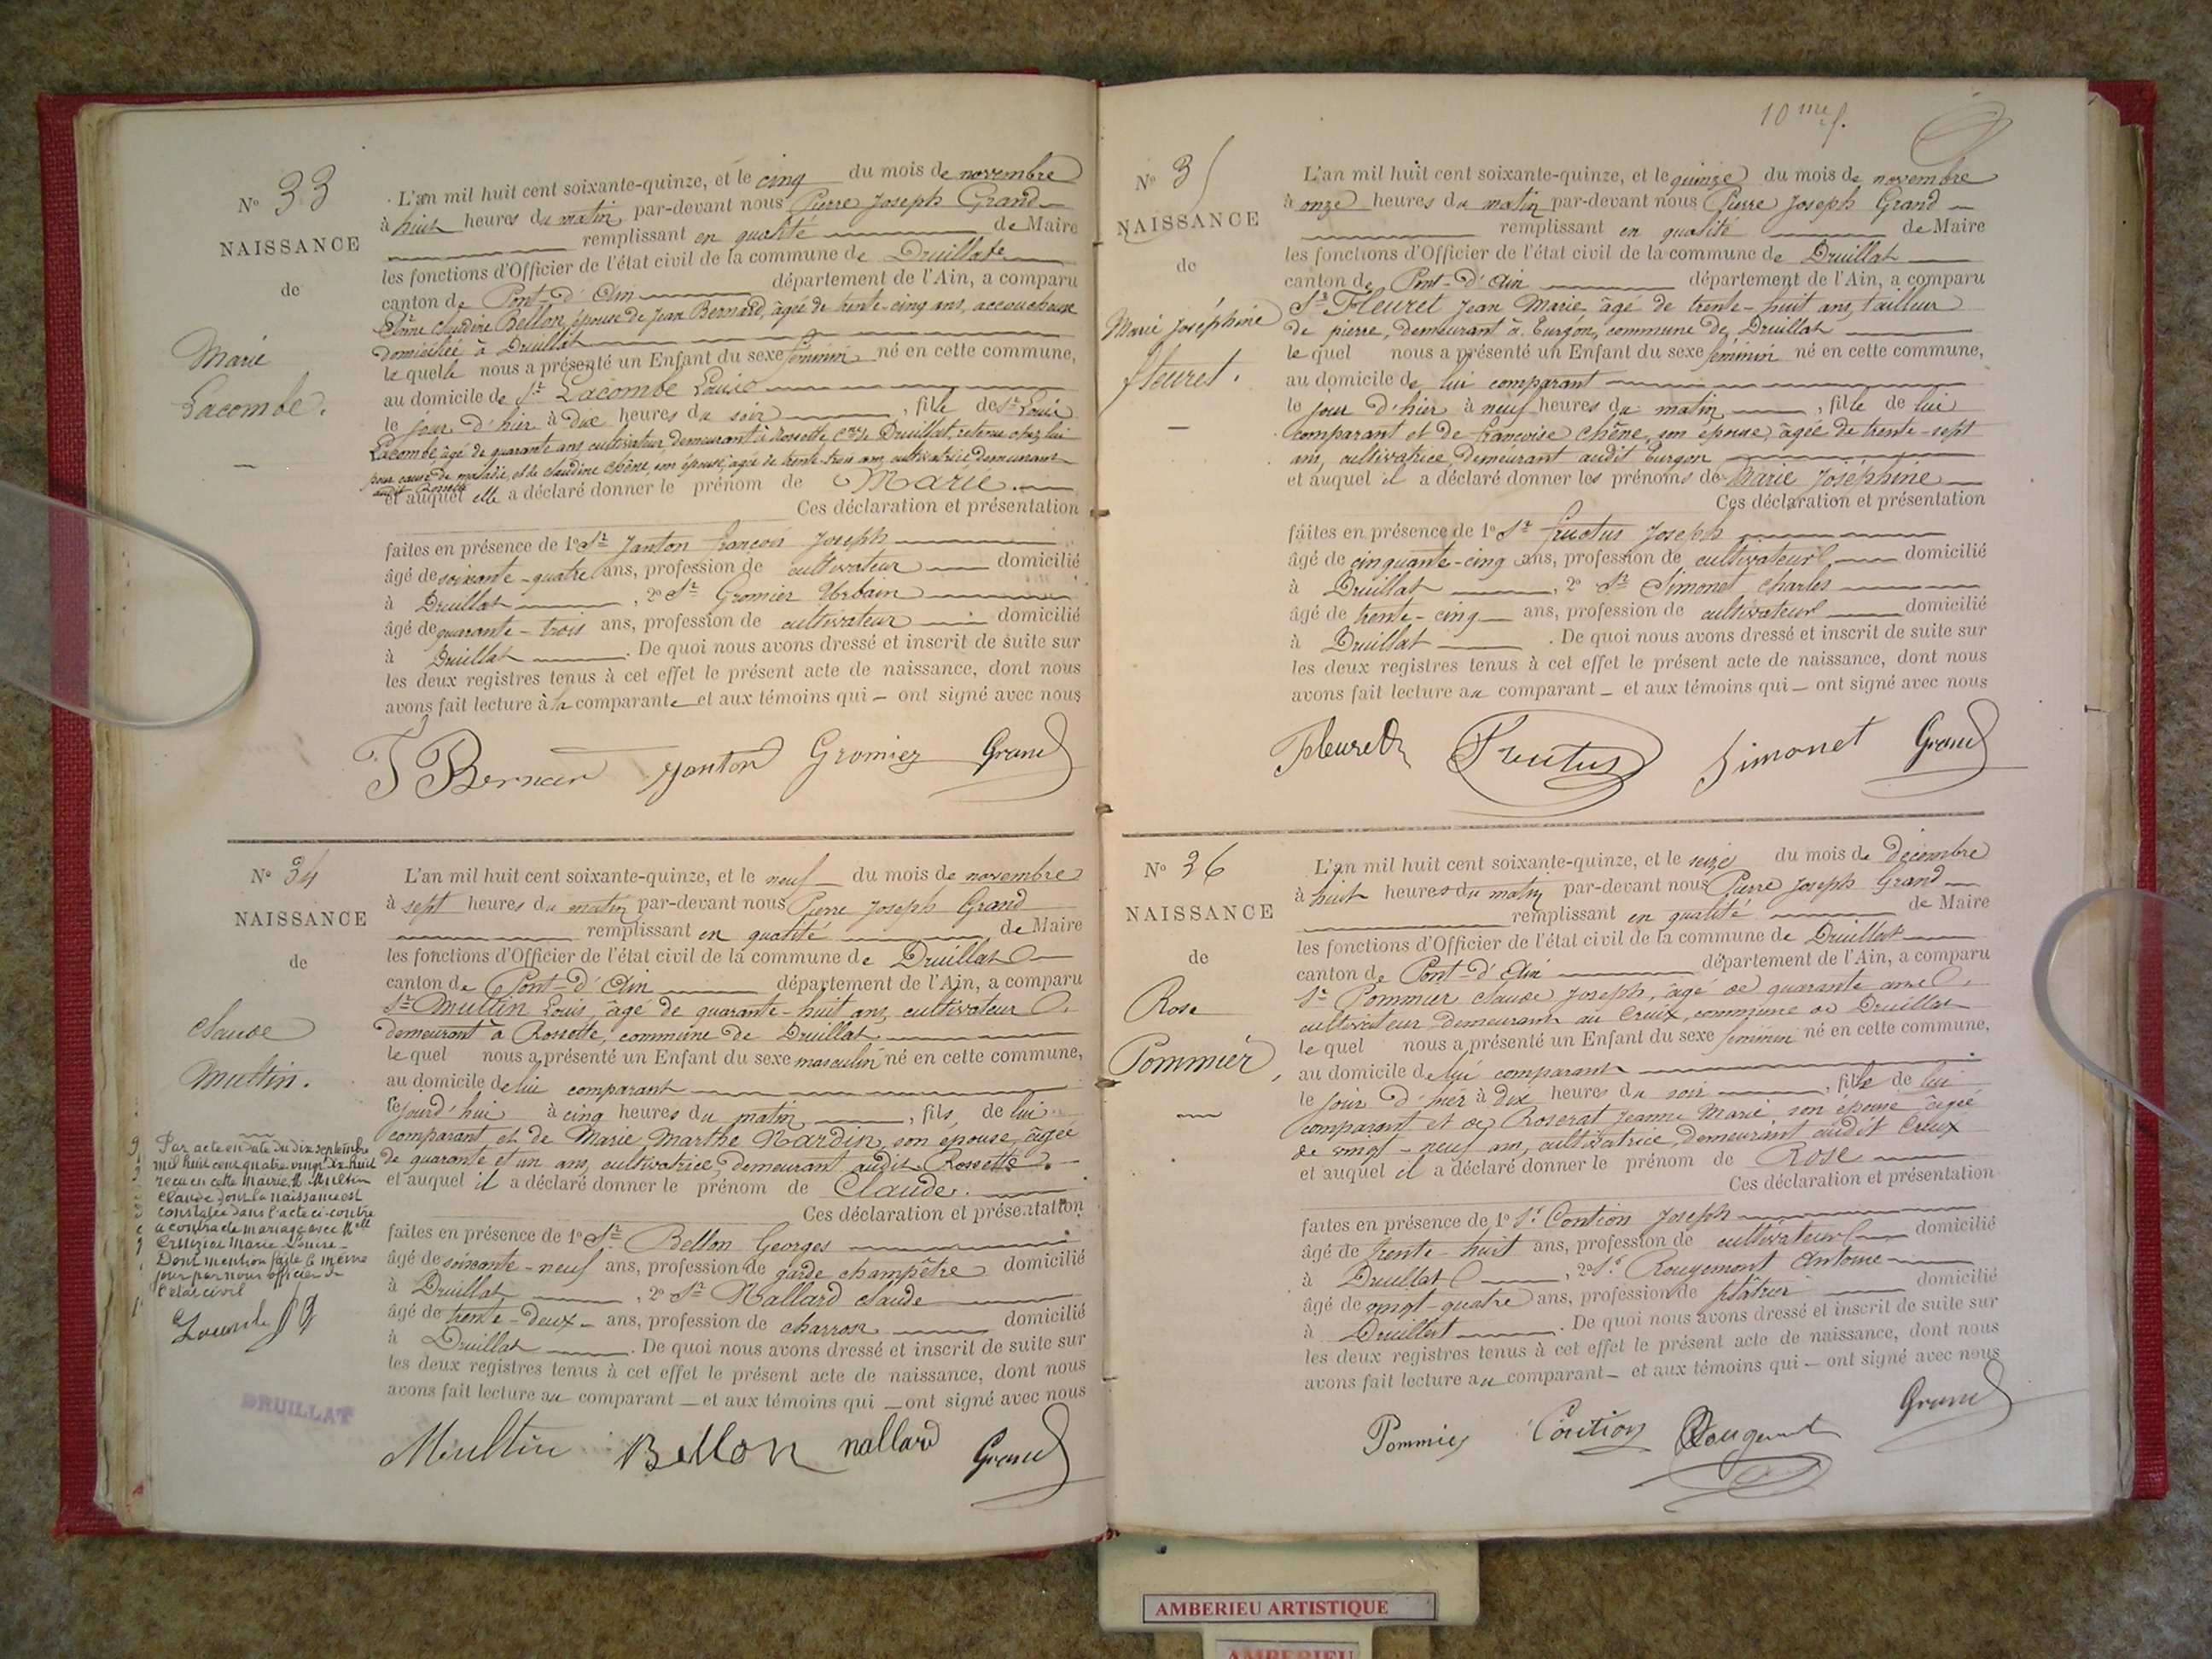 Nº 33
NAISSANCE
de
Marie
Lacombe.
L'an mil huit cent soixante-quinze, et le cinq du mois de novembre
à huit heures du matin par-devant nous Pierre Joseph Grand
remplissant en qualité de Maire
les fonctions d'Officier de l'état civil de la commune de Druillat
canton de Pont-d'Ain département de l'Ain, a comparu
Claudine Bellon, épouse de Jean Bernard, âgée de trente-cinq ans, accoucheuse
domiciliée à Druillat
le quelle nous a présenté un Enfant du sexe féminin né en cette commune,
au domicile de Sr Lacombe Louis
le jour d'hier à dix heures du soir, fille de Sr Louis
Lacombe, âgé de quarante ans, cultivateur, demeurant à Rossette cne de Druillat, retenu chez lui
pour cause de maladie, et de Claudine Chêne, son épouse, âgée de trente-trois ans, cultivatrice, demeurant
audit Rossette
et auquel elle a déclaré donner le prénom de Marie.
Ces déclaration et présentation
faites en présence de 1º Sr Janton françois Joseph
âgé de soixante-quatre ans, profession de cultivateur domicilié
à Druillat, 2º Sr Gromier Urbain
âgé de quarante-trois ans, profession de cultivateur domicilié
à Druillat. De quoi nous avons dressé et inscrit de suite sur
les deux registres tenus à cet effet le présent acte de naissance, dont nous
avons fait lecture à la comparante et aux témoins qui ont signé avec nous
Janton Gromier Grand
Nº 34
NAISSANCE
de
Claude
Multin.
L'an mil huit cent soixante-quinze, et le neuf du mois de novembre
à sept heures du matin par-devant nous Pierre Joseph Grand
remplissant en qualité de Maire
les fonctions d'Officier de l'état civil de la commune de Druillat
canton de Pont-d'Ain département de l'Ain, a comparu
Sr Multin Louis, âgé de quarante-huit ans, cultivateur
demeurant à Rossette, commune de Druillat
le quel nous a présenté un Enfant du sexe masculin né en cette commune,
au domicile de lui comparant
le jourd'hui à cinq heures du matin, fils, de lui
comparant et de Marie Marthe Nardin, son épouse, âgée
de quarante et un ans, cultivatrice, demeurant audit Rossette.
et auquel il a déclaré donner le prénom de Claude.
Ces déclaration et présentation
faites en présence de 1º Sr Bellon Georges
âgé de soixante-neuf ans, profession de garde champêtre domicilié
à Druillat, 2º Sr Nallard claude
âgé de trente-deux ans, profession de charron domicilié
à Druillat. De quoi nous avons dressé et inscrit de suite sur
les deux registres tenus à cet effet le présent acte de naissance, dont nous
avons fait lecture au comparant et aux témoins qui ont signé avec nous
Multin Bellon nallard Grand
Par acte en date du dix septembre
mil huit cent quatre vingt dix huit
reçu en cette mairie, M. Multin
Claude dont la naissance est
constatée dans l'acte ci-contre
a contracté mariage avec Mlle
Marie Louise
Dont mention faite le même
jour par nous officier de
l'état civil
DRUILLAT
10me f.
Nº 35
NAISSANCE
de
Marie Joséphine
fleuret.
L'an mil huit cent soixante-quinze, et le quinze du mois de novembre
à onze heures du matin par-devant nous Pierre Joseph Grand
remplissant en qualité de Maire
les fonctions d'Officier de l'état civil de la commune de Druillat
canton de Pont-d'Ain département de l'Ain, a comparu
Sr Fleuret Jean Marie, âgé de trente-huit ans, tailleur
de pierre, demeurant à Turgon, commune de Druillat
le quel nous a présenté un Enfant du sexe féminin né en cette commune,
au domicile de lui comparant
le jour d'hier à neuf heures du matin, fille de lui
comparant et de françoise Chêne, son épouse, âgée de trente-sept
ans, cultivatrice, demeurant audit Turgon
et auquel il a déclaré donner les prénoms de Marie Joséphine
Ces déclaration et présentation
faites en présence de 1º Sr fructus Joseph
âgé de cinquante-cinq ans, profession de cultivateur domicilié
à Druillat, 2º Sr Simonet Charles
âgé de trente-cinq ans, profession de cultivateur domicilié
à Druillat. De quoi nous avons dressé et inscrit de suite sur
les deux registres tenus à cet effet le présent acte de naissance, dont nous
avons fait lecture au comparant et aux témoins qui ont signé avec nous
Fleuret Fructus Simonet Grand
Nº 36
NAISSANCE
de
Rose
Pommier
L'an mil huit cent soixante-quinze, et le seize du mois de décembre
à huit heures du matin par-devant nous Pierre Joseph Grand
remplissant en qualité de Maire
les fonctions d'Officier de l'état civil de la commune de Druillat
canton de Pont-d'Ain département de l'Ain, a comparu
Sr Pommier Claude Joseph, âgé de quarante ans
cultivateur demeurant au Creux, commune de Druillat
le quel nous a présenté un Enfant du sexe féminin né en cette commune,
au domicile de lui comparant
le jour d'hier à dix heures du soir, fille de lui
comparant et de Roserat Jeanne Marie son épouse âgée
de vingt-neuf ans, cultivatrice, demeurant audit Creux
et auquel il a déclaré donner le prénom de Rose
Ces déclaration et présentation
faites en présence de 1º Sr Contion Joseph
âgé de trente-huit ans, profession de cultivateur domicilié
à Druillat, 2º Sr Rougemont Antoine
âgé de vingt-quatre ans, profession de plâtrier domicilié
à Druillat. De quoi nous avons dressé et inscrit de suite sur
les deux registres tenus à cet effet le présent acte de naissance, dont nous
avons fait lecture au comparant et aux témoins qui ont signé avec nous
Pommier Contion Rougemont Grand
AMBERIEU ARTISTIQUE
AMBERIEU